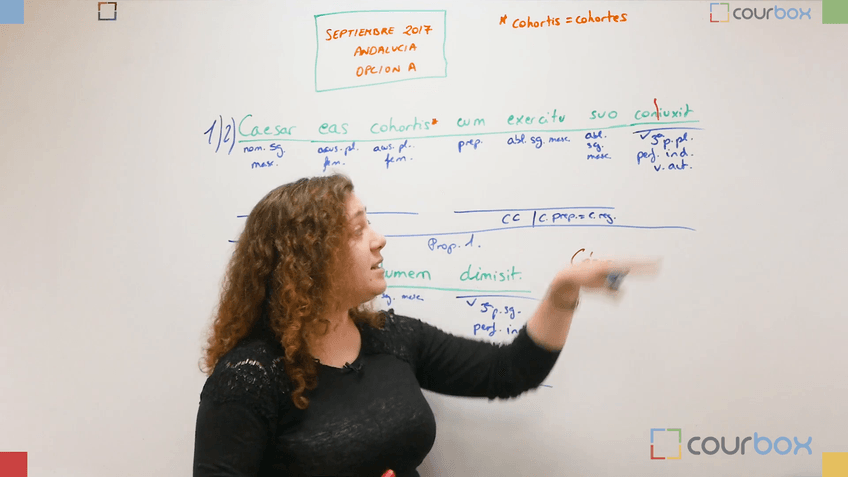 courbox
SEPTIEMBRE 2017
ANDALUCIA
OPCION A
* cohortis = cohortes
1) 2) Caesar eas cohortis* cum exercitu suo coniuxit
nom. sg. masc.
acus. pl. fem.
acus. pl. fem.
prep.
abl. sg. masc.
abl. sg. masc.
3ª p. pl. perf. ind. v. act.
CC | C. prep. = C. reg.
Prop. 1.
umem dimisit.
sg. masc.
3ª p. sg. perf. ind
courbox